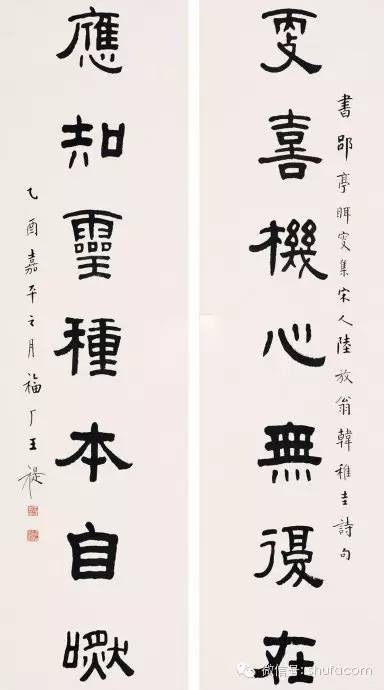 㪅喜機心無復在
書郘亭眲叟集宋人陸放翁韓稚圭詩句
應知靈種本自
乙酉嘉平之月福厂王禔
微信号: shufacom